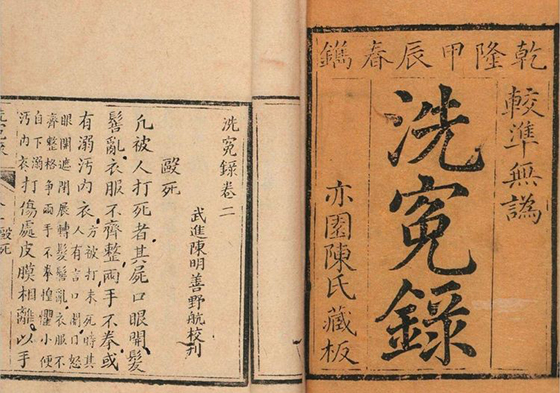 乾隆甲辰春鐫
較準無譌
洗寃錄
亦園陳氏藏板
洗寃錄卷二
武進陳明善野航校刊
毆死
凡被人打死者其屍口眼開髮
髻亂衣服不齊整兩手不拳或
有溺汚內衣方被打未死時其
人有言口開口怒
眼開遮閉展轉髮髻亂衣服不
齊整格爭兩手不拳惶懼小便
自下溺
汚內衣打傷處皮膜相離以手